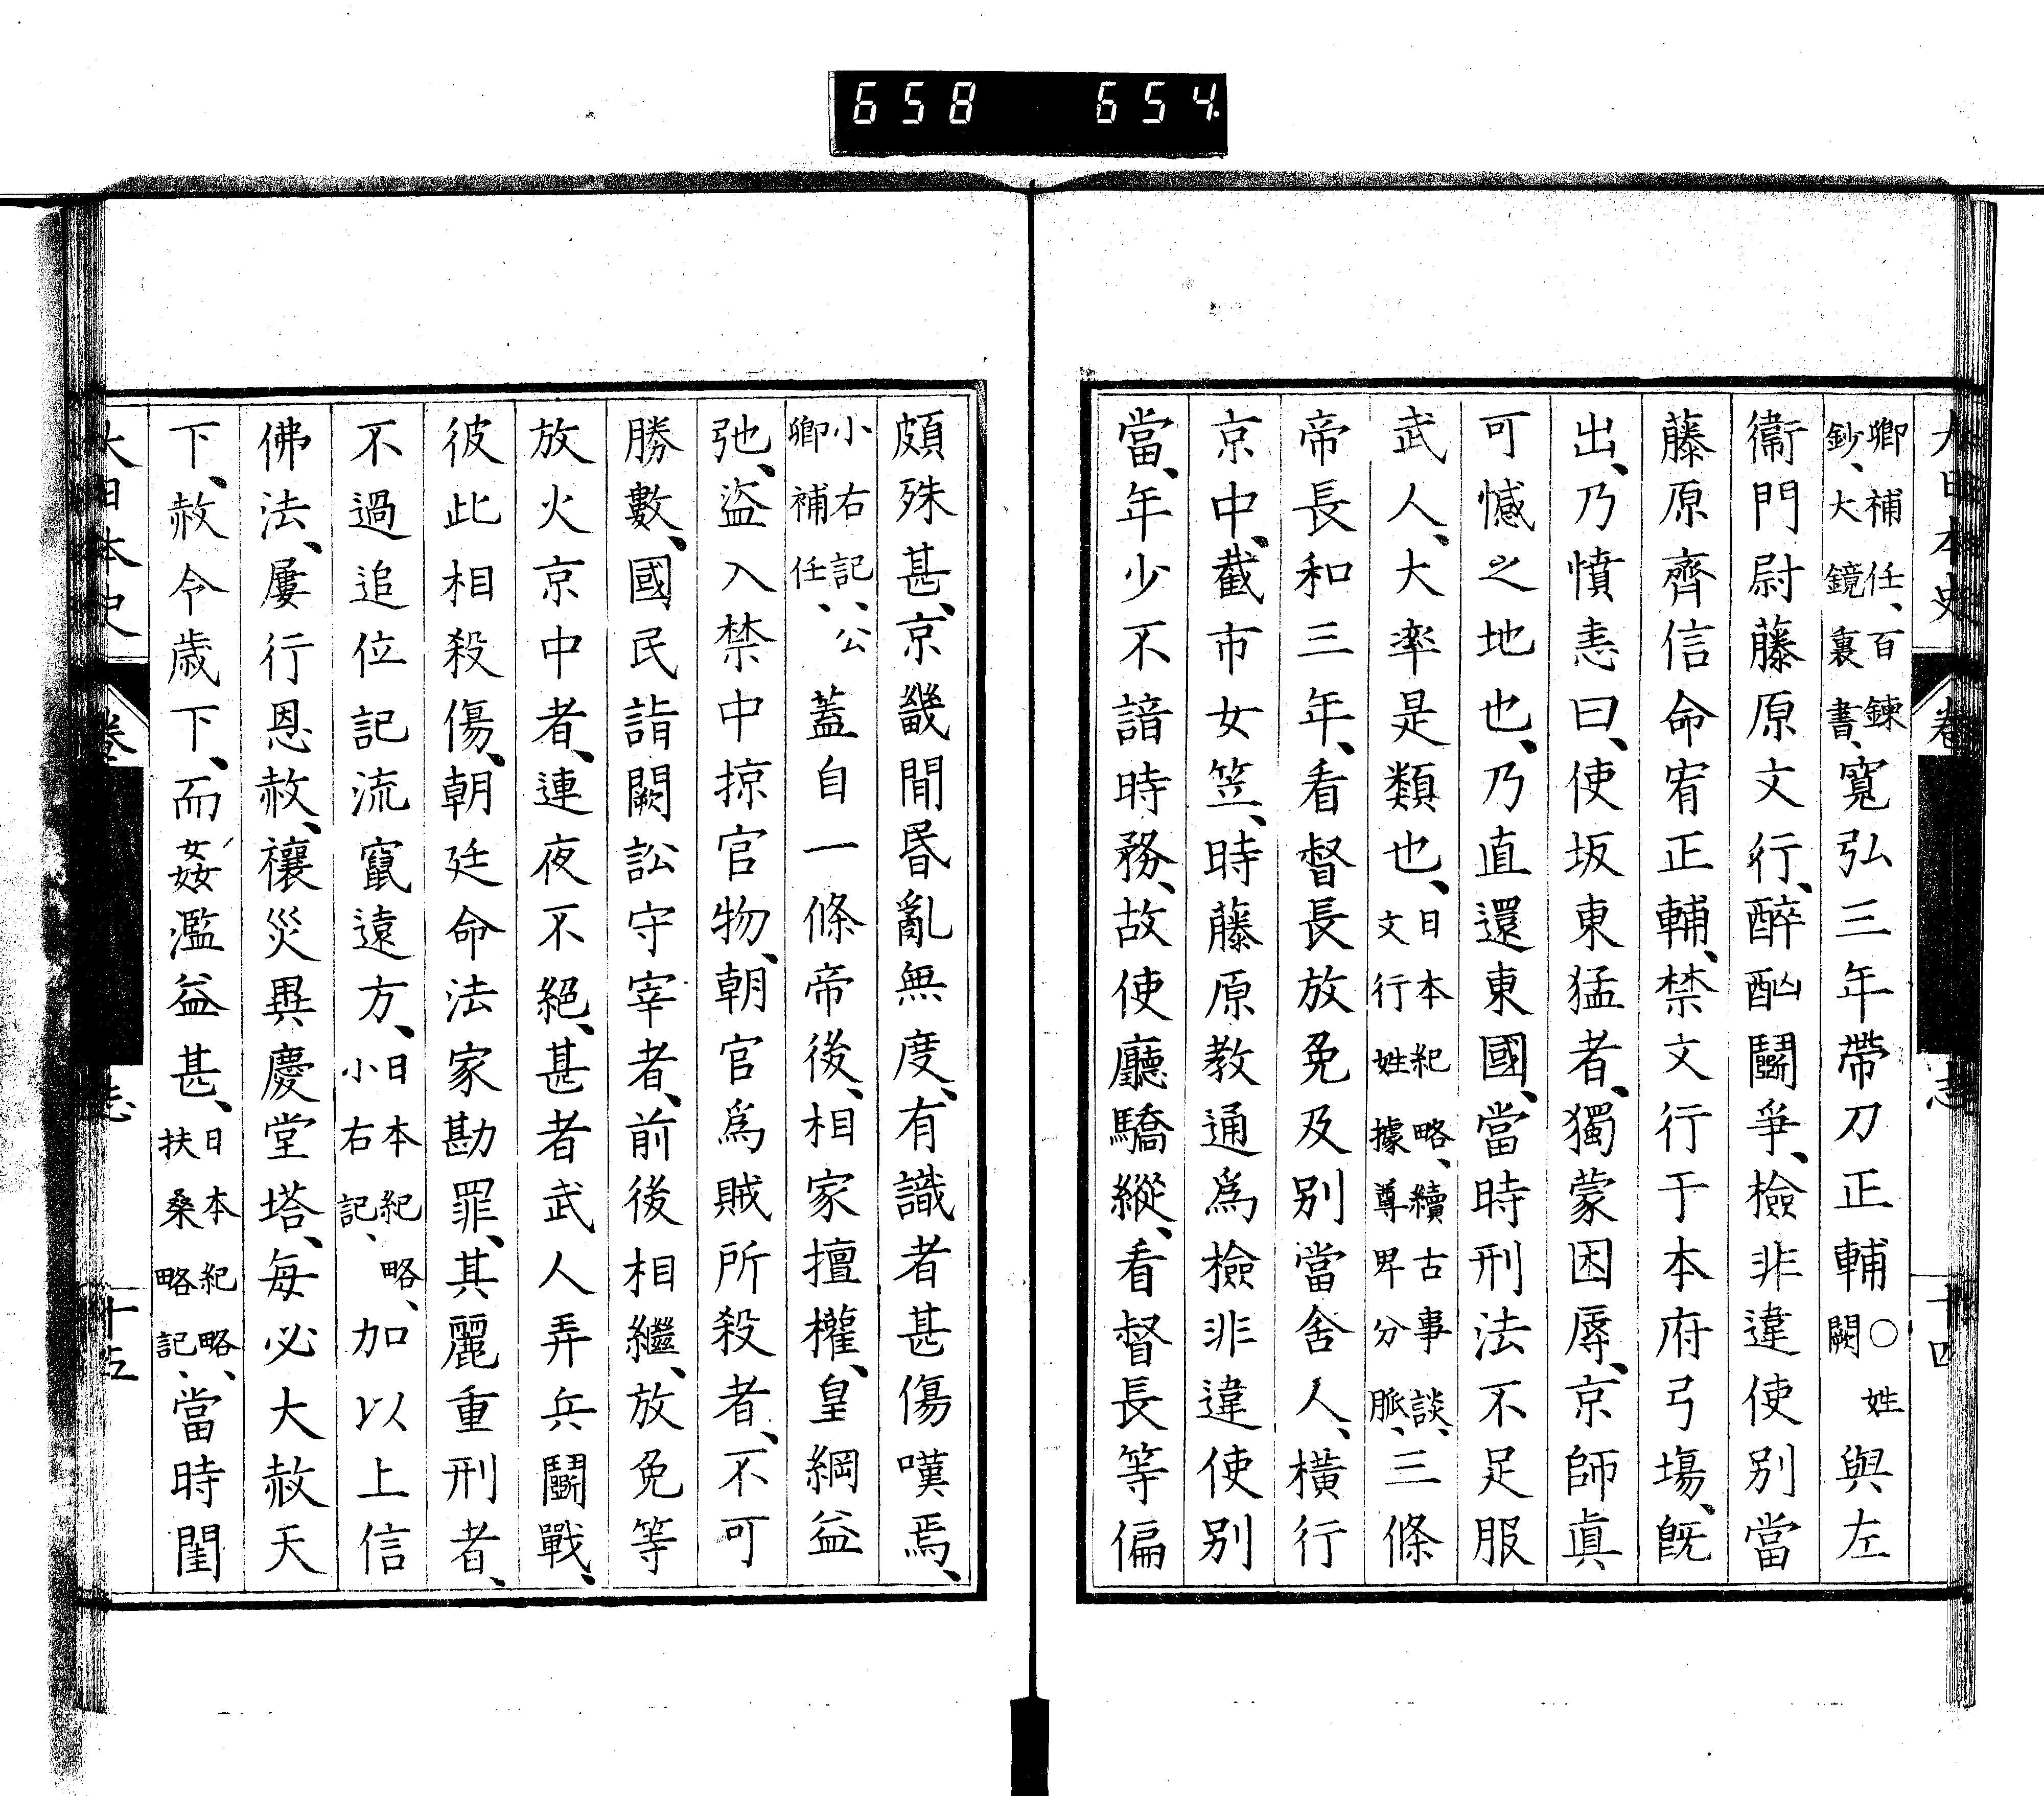 658 654
大日本史 卷 志 十四
卿補任、百鍊
鈔、大鏡裏書、
寬弘三年帶刀正輔
○姓
闕
與左
衞門尉藤原文行、醉酗鬭爭、檢非違使別當
藤原齊信命宥正輔、禁文行于本府弓場、旣
出、乃憤恚曰、使坂東猛者、獨蒙困辱、京師眞
可憾之地也、乃直還東國、當時刑法不足服
武人、大率是類也、
日本紀略、續古事談、
文行姓據尊卑分脈、
三條
帝長和三年、看督長放免及別當舍人、橫行
京中、截市女笠、時藤原敎通爲檢非違使別
當、年少不諳時務、故使廳驕縱、看督長等偏
頗殊甚、京畿間昬亂無度、有識者甚傷嘆焉、
小右記、公
卿補任、
蓋自一條帝後、相家擅權、皇綱益
弛、盜入禁中掠官物、朝官爲賊所殺者、不可
勝數、國民詣闕訟守宰者、前後相繼、放免等
放火京中者、連夜不絕、甚者武人弄兵鬭戰、
彼此相殺傷、朝廷命法家勘罪、其麗重刑者、
不過追位記流竄遠方、
日本紀略、
小右記、
加以上信
佛法、屢行恩赦、禳災異慶堂塔、每必大赦天
下、赦令歲下、而姦濫益甚、
日本紀略、
扶桑略記、
當時閨
大日本史 卷 志 十五